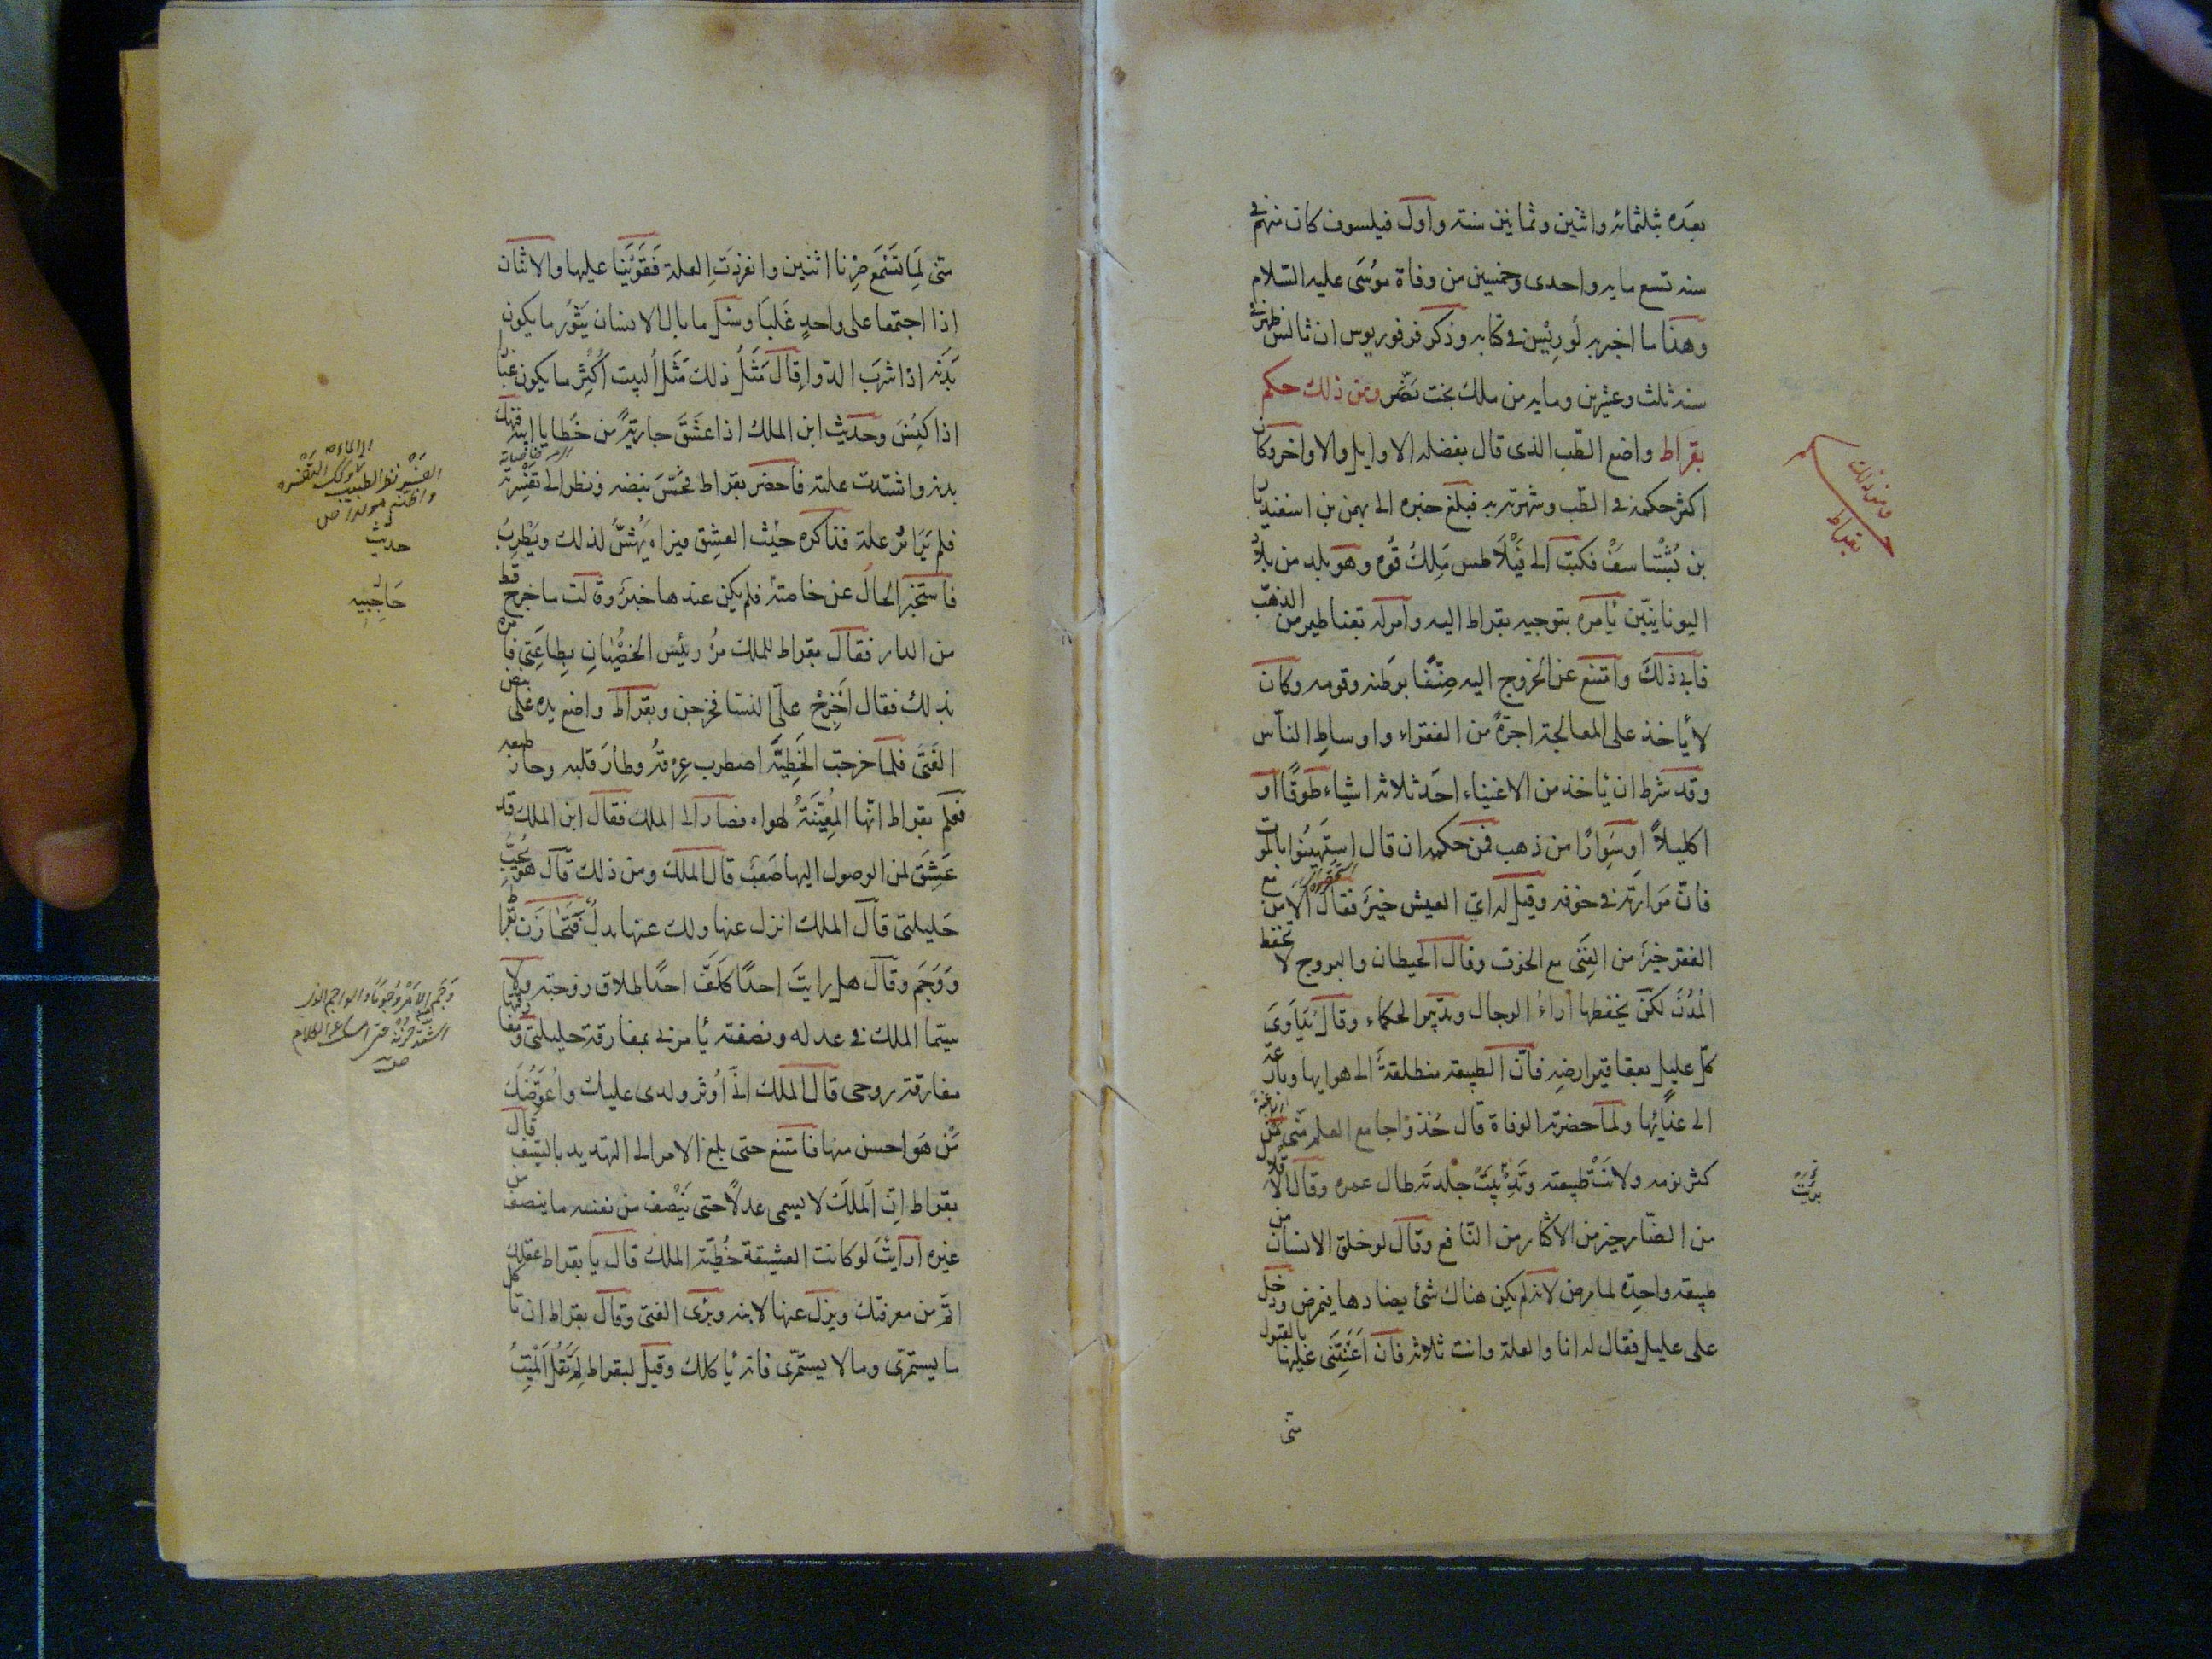 بعده بثلثمائه واثنين وثمانين سنة واول فيلسوف كان منهم في
سنه تسع مايه واحدى وخمسين من وفاة موسَى عليه السّلام
وهذا ما اخبر به لُورِيُيس في كتابه وذكر فرفوريوس ان ثالس ظهر في
سنه ثلث وعشرين ومايه من ملك بخت نصّر ومن ذلك حكم
بقراط واضع الطّب الذى قال بفضله الاوايل والاواخر وكان
اكثر حكمه في الطّب وشهرته به فبلغ خبره الى بهمن بن اسفنديار
بن كُشْتاسَفْ فكتب الى فَيْلَاطس مَلِكُ قُوه وهو بلد من بلاد
اليونانيّين يأمره بتوجيه بقراط اليه وامر له بقناطير من الذهب
فابى ذلك وامتنع عن الخروج اليه ضِنًّا بوَطنه وقومه وكان
لا يأخذ على المعالجة اجرةً من الفقراء واوساطِ النّاس
وقد شرط ان يأخذ من الاغنياء احَد ثلاثه اشياء طَوقًا او
اكليلاً اوسِوارًا من ذهب فمن حكمه ان قال اِستَهِينُوا بالموت
فانّ مَرارَتَه في خوفه وقيل له اىّ العيش خيرٌ فقال الامن مع
الفقر خيرٌ من الغِنَى مع الخوف وقال الحيطان والبروج لا تحفظ
المُدُنَ لكنّ يحفظها اراءُ الرجال وتدبيرُ الحكماء وقال يُدَاوَى
كلّ عليل بعقاقير ارضِه فانّ الطبيعة منطلقةٌ الى هوايها ونازعة
الى غذائِها ولما حضرته الوفاة قال خُذوا جامع العلم منّى مَن
كثر نومه ولانَتْ طبيعته ونَدِيَتْ جلدته طال عمره وقال الاقلال
من الضّار خير من الاكثار من النّافع وقال لو خلق الانسان من
طبيعه واحدِه لما مرض لانه لم يكن هناك شئ يضادها فيمرض ودخل
على عليل فقال له انا والعلة وانت ثلاثه فان اَعَنْتَنى عَليها بالقبول
متى
ومن ذلك
بقراط
متى لِمَا تَسْمَع صِرْنا اثنين وانفردَتِ العلة فَقَوَيْنَا عليها والاثنان
اذا اجتمعا على واحدٍ غَلَبَا وسئل ما بال الانسان يَثُورُ ما يكون
بَدَنه اذا شرَب الدّوا قال مَثَلُ ذلك مَثَلُ البيت اكْثر ما يكون غبارًا
اذا كُنِسَ وحديث ابن الملك اذا عشَقَ جاريةً من خُطايا ابيه فنهك
بدنه واشتدت علته فاحضر بقراط فجسّ نبضه ونظر الى تَفْسِرته
فلم يَرَ اثر علة فذاكره حيْث العِشِق فيراه يُهَشَّ لذلك ويَطْرِبُ
فاستخبر الحالَ عن خاصته فلم يكن عندها خبرٌ وقالت ما خرج قط
من الدار فقال بقراط للملك مُرْ رئيسَ الخصُيّانِ بِطاعَتِى فامره
بذلك فقال اَخرِجْ علَىّ النسا فخرجن وبقراط واضع يده على نبض
الفَتَى فلما خرجت الخَطِيَّه اضطرب عِرْقهُ وطار قلبه وحار طبعه
فعَلِم بقراط انّها المُعِيَنَةُ لهواه فصار الى الملك فقال ابن الملك قد
عَشِقَ لمن الوصول اليها صَعبٌ قال الملك ومن ذلك قال هو يُحِبُّ
حَليلتى قال الملك انزل عنها ولك عنها بدلٌ فَتَحازَن بقراط
وَوَجَم وقال هل رايتَ احدًا كلَفَّ احدًا طلاق زوجته ولا
سيّما الملك في عدله ونصفته يأمرنى بمفارقة حليلتى
مفارقة روحى قال الملك انّى اُوثر ولدى عليك واُعَوِّضُكَ
مَنْ هو احسن منها فامتنع حتى بلغ الامر الى التهديد بالسّيف قال
بقراط اِنّ اَلملكَ لا يسمى عدلاً حتى يَنْصف من نفسه ما ينصف من
غيره ارايتَ لو كانت العشيقة خُطِيّة الملك قال يا بقراط عقلك
اتمّ من معرفتك ونزل عنها لابنه وبَرى الفتى وقال بقراط ان تاكل
ما يستمرّى وما لا يستمرّى فانه يأكلك وقيل لبقراط لِمَ ثَقُلَ اَلْميّتُ
التفسرة نظر الطبيب الى الماء
حديث
حَاجِبِيه
وَجَم الامر وُجومًا والواجم الذى
اشتدّ حزنه حتى امسك عن الكلام